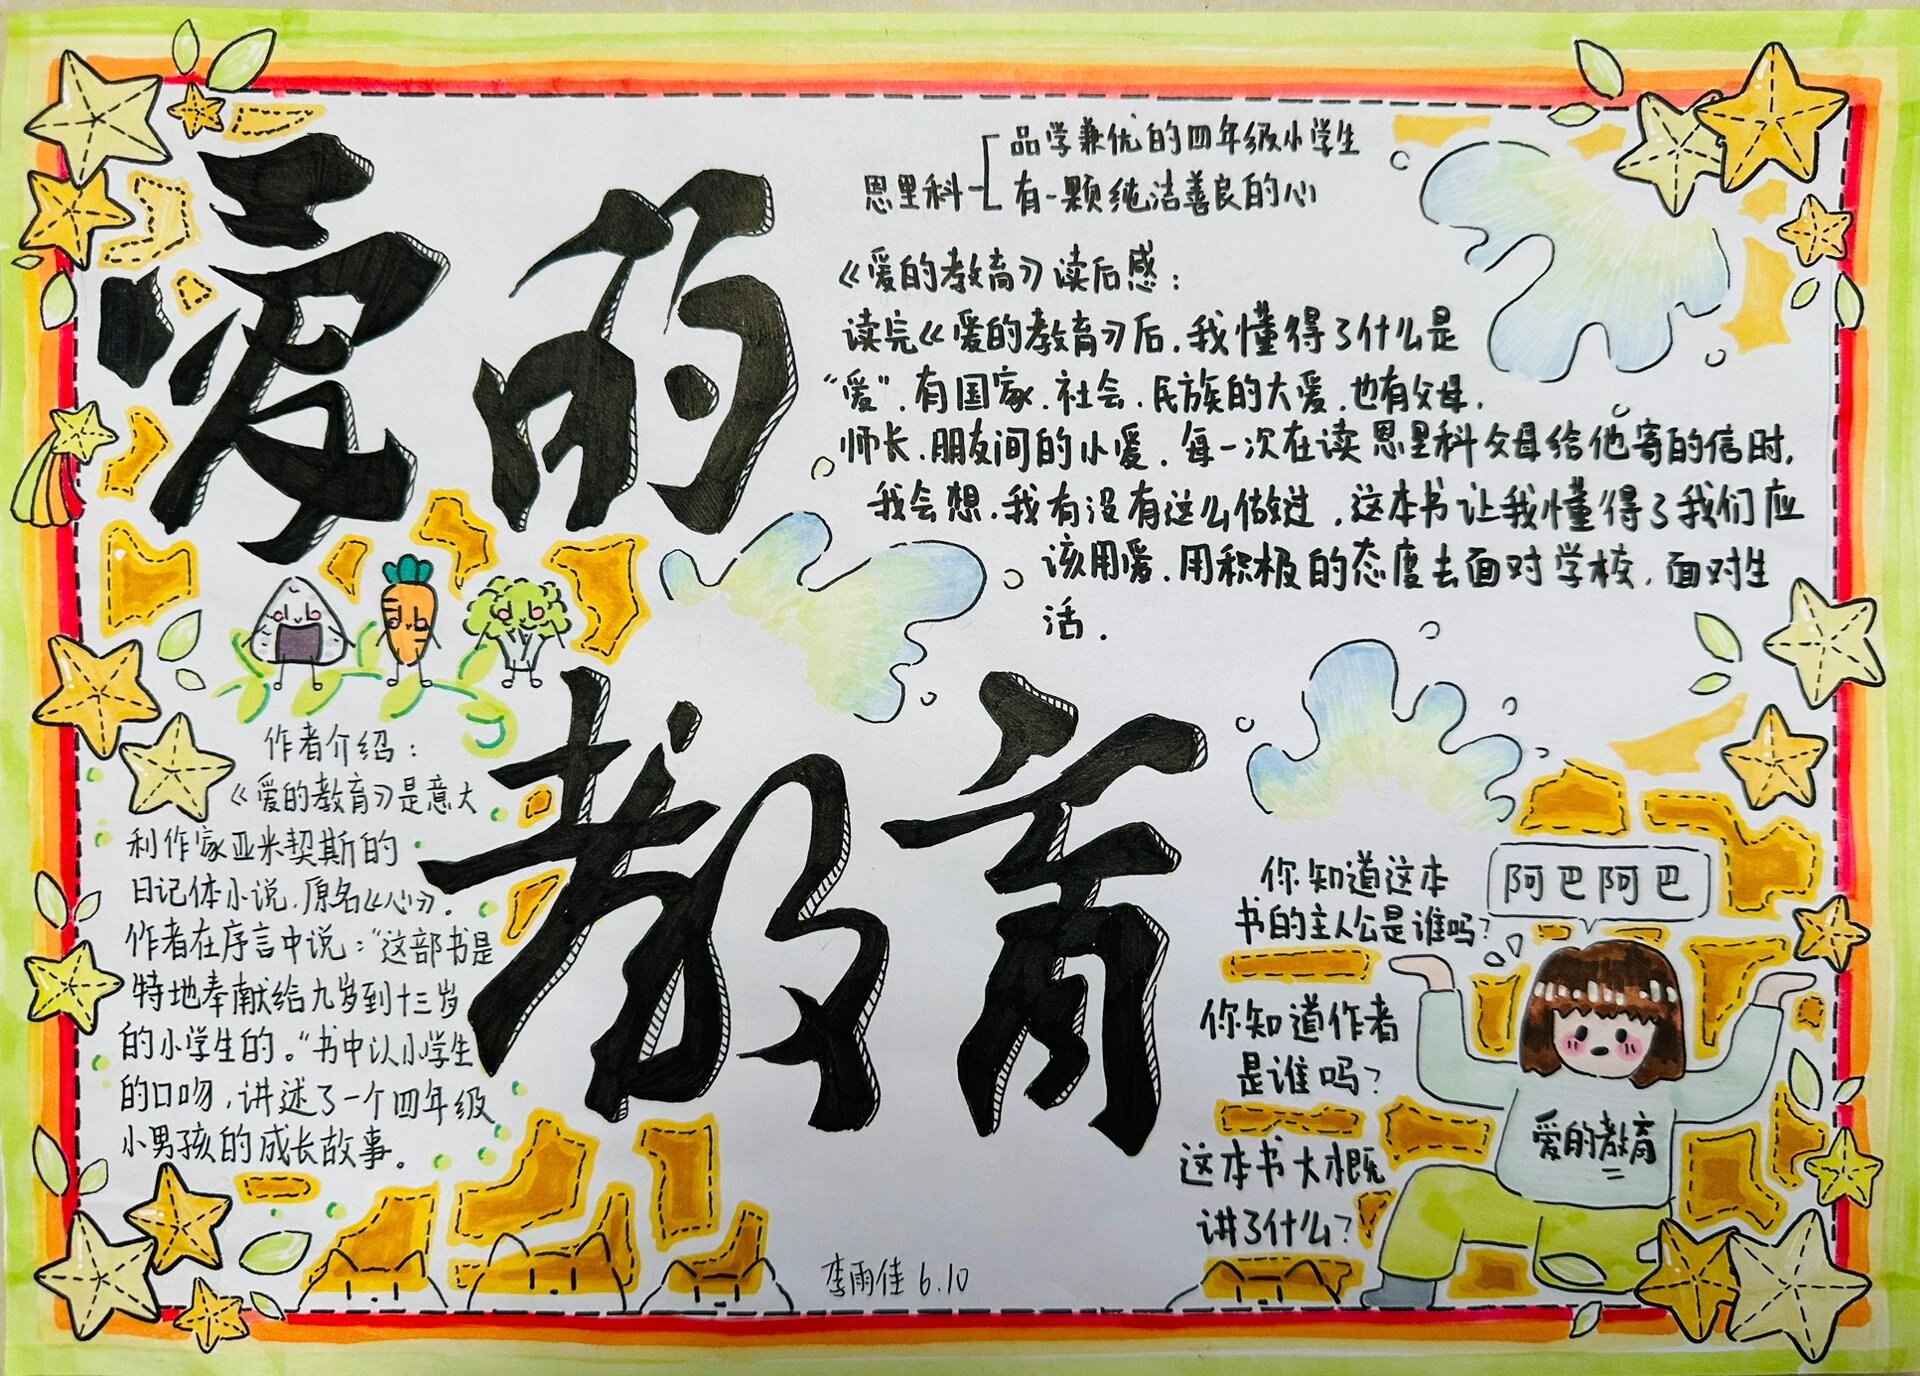 爱的
教育
恩里科
品学兼优的四年级小学生
有一颗纯洁善良的心
《爱的教育》读后感：
读完《爱的教育》后，我懂得了什么是
“爱”，有国家、社会、民族的大爱，也有父母、
师长、朋友间的小爱，每一次在读恩里科父母给他寄的信时，
我会想，我有没有这么做过，这本书让我懂得了我们应
该用爱，用积极的态度去面对学校，面对生
活．
作者介绍：
《爱的教育》是意大
利作家亚米契斯的
日记体小说，原名《心》．
作者在序言中说：“这部书是
特地奉献给九岁到十三岁
的小学生的。“书中以小学生
的口吻，讲述了一个四年级
小男孩的成长故事。
你知道这本
书的主人公是谁吗？
阿巴阿巴
你知道作者
是谁吗？
这本书大概
讲了什么？
爱的教育
李雨佳 6.10